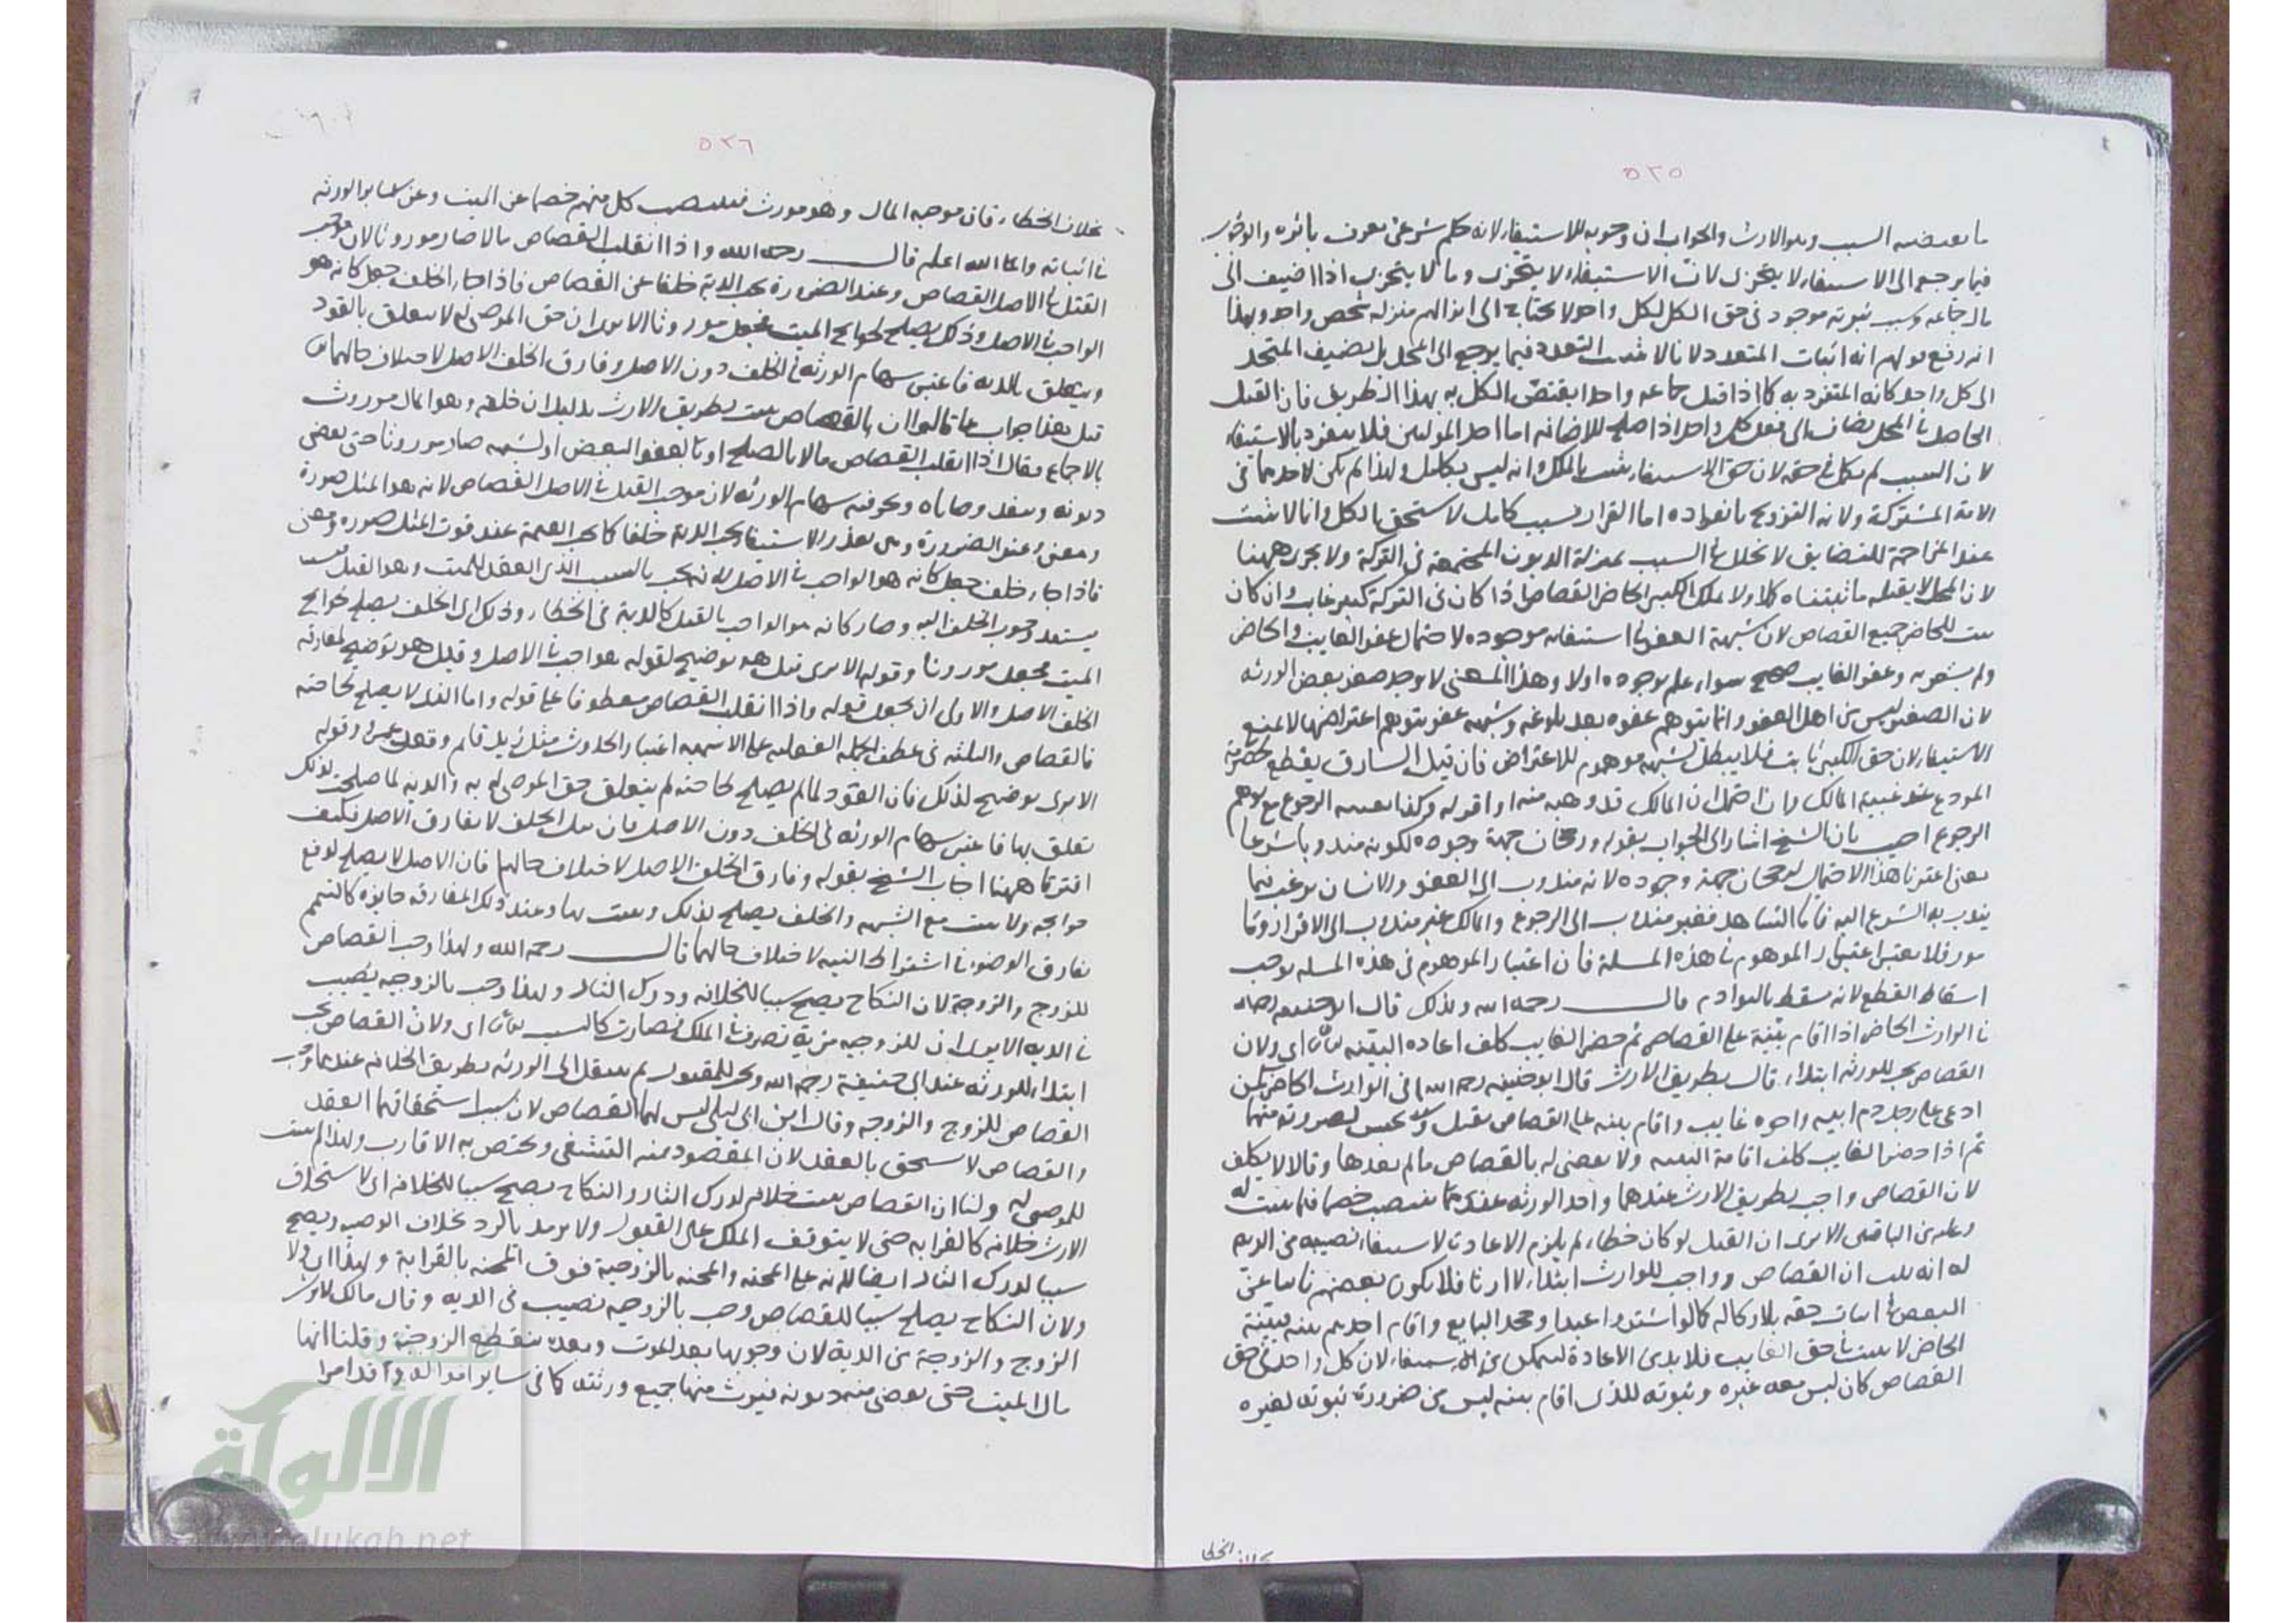 ٥٢٥
ما يعضيه السبب وهو الارث والجواب ان وجوبه للاستيفاء لانه حكم شرعي يعرف باثره والوجوب
فيما يرجع الى الاستيفاء لا يتجزى لان الاستيفاء لا يتجزى وما لا يتجزى اذا اضيف الى
جماعه وسبب ثبوته موجود في حق الكل لكل واحد ولا يحتاج الى انزالهم منزله شخص واحد وبهذا
اندفع قولهم انه اثبات المتعدد لانا لا نثبت التعدد فيما يرجع الى المحل بل نضيف المتحد
الى كل واحد كانه المتفرد به كما اذا قتل جماعه واحدا يقتص الكل به بهذا الطريق فان القتل
الحاصل في المحل يضاف الى فعل كل واحد اذا صلح للاضافه اما احد الموليين فلا ينفرد بالاستيفاء
لان السبب لم يكمل في حقه لان حق الاستيفاء يثبت بالملك وانه ليس بكامل ولهذا لم يكن لاحدهما في
الامة المشتركة ولاية التزويج بانفراده اما القرابة سبب كامل لاستحق الكل وانما لا يثبت
عند المزاحمة للتضايق لا لخلل في السبب بمنزلة الديون المجتمعة في التركة ولا يجرى ههنا
لان المحل لا يقبله ما بيناه ولا يملك الكبير الحاضر القصاص اذا كان في التركة كبير غايب وان كان
يثبت للحاضر جميع القصاص لان شبهة العفو في استيفائه موجوده لاحتمال عفو الغايب والحاضر
ولم يشعر به وعفو الغايب صحيح سواء علم بوجوده اولا وهذا المعنى لا يوجد عند صغر بعض الورثه
لان الصغير ليس من اهل العفو وانما يتوهم عفوه بعد بلوغه وشبهه عفو يتوهم اعتراضها لا تمنع
الاستيفاء لان حق الكبير ثابت فلا يبطل بشبهه موهوم الاعتراض فان قيل السارق يقطع بخصومة
المودع عند غيبة المالك وان احتمل ان المالك قد وهبه منه او اقر له وكذا بعد الرجوع مع توهم
الرجوع اجيب بان الشيخ اشار الى الجواب بقوله ورجحان جهة وجوده لكونه مندوبا شرعا
يعني اعتبرنا هذا الاحتمال لرجحان جهة وجوده لانه مندوب الى العفو والانسان يرغب فيما
يندب به الشرع اليه فاما الشاهد فغير مندوب الى الرجوع والمالك غير مندوب الى الاقرار
فلا يعتبر اعتبار الموهوم في هذه المسلة فان اعتبار الموهوم في هذه المسله يوجب
اسقاط القطع لانه يسقط بالبوادم قال رحمه الله ولذلك قال ابو حنيفه رحمه الله
في الوارث الحاضر اذا اقام بينة على القصاص ثم حضر الغايب كلف اعاده البينه اي ولان
القصاص يجب للورثه ابتداء قال بطريق الارث قال ابو حنيفه رحمه الله في الوارث الحاضر
ادعى على رجل دم ابيه واخوه غايب واقام بينه على القصاص تقبل ويحبس
ثم اذا حضر الغايب كلف اقامة البينه ولا يقضى له بالقصاص ما لم يعدها وقالا لا يكلف
لان القصاص واجب بطريق الارث عندهما واحد الورثه عندهما ينتصب خصما فيما يثبت له
وعليه من الباقين الا يرى ان القتل لو كان خطاء لم يلزم الاعادة لاستيفاء نصيبه من الديه
له ان القصاص واجب للوارث ابتداء لا ارثا فلا يكون بعضهم نايبا عن
البعض في اثبات حقه بلا وكاله كما لو اشتروا عبدا وجحد البايع واقام احدهم بينه فبينة
الحاضر لا يثبت في حق الغايب فلا بد من الاعادة ليتمكن من الاستيفاء لان كل واحد في حق
القصاص كان ليس معه غيره وثبوته للذى اقام بينه ليس من ضرورة ثبوته لغيره
بخلاف الخطا
٥٢٦
بخلاف الخطاء فان موجبه المال وهو مورث فينتصب كل منهم خصما عن الميت وعن ساير الورثه
في اثباته والله اعلم قال رحمه الله واذا انقلب القصاص مالا صار موروثا لان موجب
القتل في الاصل القصاص وعند الضرورة يجب الدية خلفا عن القصاص فاذا جاء الخلف جعل كانه هو
الواجب في الاصل وذلك يصلح لحوايج الميت فجعل موروثا الا يرى ان حق الموصى له لا يتعلق بالقود
ويتعلق بالديه فاعتبر سهام الورثه في الخلف دون الاصل وفارق الخلف الاصل لاختلاف حالهما
قيل هذا جواب عما قالوا ان القصاص يثبت بطريق الارث بدليل ان خلفه وهو المال موروث
بالاجماع فقال اذا انقلب القصاص مالا بالصلح او بالعفو البعض او لشبهه صار موروثا حتى يقضى
ديونه وينفذ وصاياه ويجرى فيه سهام الورثه لان موجب القتل في الاصل القصاص لانه هو المثل صورة
ومعنى وعند الضرورة وهي تعذر الاستيفاء يجب الدية خلفا كما يجب القيمة عند فوت المثل صوره ومعنى
فاذا جاء خلف جعل كانه هو الواجب في الاصل لانه يجب بالسبب الذى انعقد للميت وهو القتل
يستند وجوب الخلف اليه وصار كانه هو الواجب بالقتل كالدية في الخطاء وذلك اى الخلف يصلح لحوايج
الميت فجعل موروثا وقوله الا يرى قيل هو توضيح لقوله هو الواجب في الاصل وقيل هو توضيح لمفارقه
الخلف الاصل والاولى ان يجعل قوله واذا انقلب القصاص معطوفا على قوله واما الذى لا يصلح لحاجته
فالقصاص والنكتة في عطف الجملة الفعليه على الاسميه اعتبار الحدوث مثل زيد قام وقعد عمرو وقوله
الا يرى توضيح لذلك فان القود لما لم يصلح لحاجته لم يتعلق حق الموصى له به والديه لما صلحت لذلك
تعلق بها فاعتبر سهام الورثه في الخلف دون الاصل فان قيل الخلف لا يفارق الاصل فكيف
افترقا ههنا اجاب الشيخ بقوله وفارق الخلف الاصل لاختلاف حالهما فان الاصل لا يصلح لدفع
حوايجه ولا يثبت مع الشبهه والخلف يصلح لذلك ويثبت بها وعند ذلك المفارقه جايزه كالتيمم
يفارق الوضوء في اشتراط النيه لاختلاف حالهما قال رحمه الله ولهذا وجب القصاص
للزوج والزوجة لان النكاح يصلح سببا للخلافه ودرك الثار ولهذا وجب بالزوجيه نصيب
في الديه الا يرى ان للزوجيه مزية تصرف في الملك فصارت كالنسب اى ولان القصاص يجب
ابتداء للورثه عند ابي حنيفة رحمه الله ويجب للمقتول ثم ينتقل الى الورثه بطريق الخلافه عندهما وجب
القصاص للزوج والزوجه وقال ابن ابي ليلى ليس لهما القصاص لان سبب استحقاقهما العقد
والقصاص لا يستحق بالعقد لان المقصود منه التشفى ويختص به الاقارب ولهذا لم يثبت
للموصى له ولنا ان القصاص يثبت خلافه لدرك الثار والنكاح يصلح سببا للخلافه اى لاستحقاق
الارث خلافه كالقرابه حتى لا يتوقف الملك على القبول ولا يرتد بالرد بخلاف الوصيه ويصلح
سببا لدرك الثار ايضا لانه على المحبه والمحبه بالزوجية فوق المحبه بالقرابة ولهذا اى
ولان النكاح يصلح سببا للقصاص وجب بالزوجيه نصيب في الديه وقال مالك لا يرث
الزوج والزوجة من الدية لان وجوبها بعد الموت وبعده ينقطع الزوجيه وقلنا انها
مال الميت حتى يقضى منه ديونه فيورث منها جميع ورثته كما في ساير امواله وقد امر
الألوكة
www.alukah.net